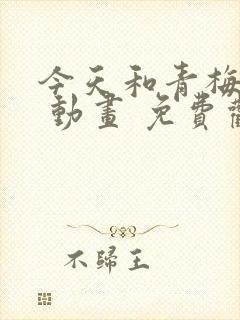 今天和青梅
動畫 免費
不歸王